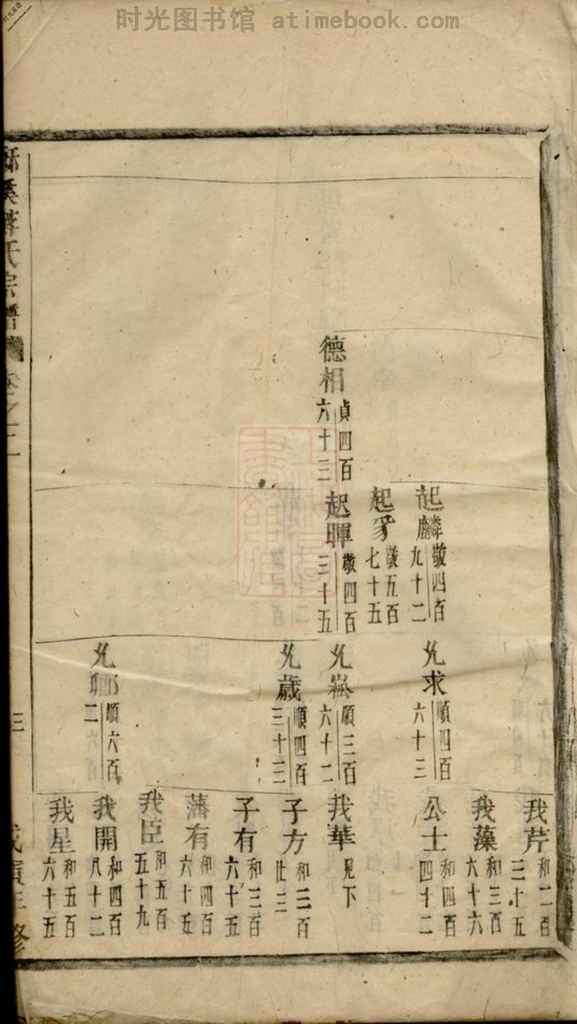 时光图书馆 atimebook.com
德相 貞四百六十三
起麟 敬四百九十二
起家 敬五百七十五
起暉 敬四百三十五
允求 順四百六十三
允 順三百六十二
允歲 順四百三十二
允 順六百二
我芹 和二百三十五
我藻 和三百六十六
公士 和四百四十二
我華 見下
子方 和三百廿三
子有 和三百六十五
藩有 和四百六十五
我臣 和五百五十九
我開 和四百八十二
我星 和五百六十五
氏宗譜 卷之二
三
戊寅 修